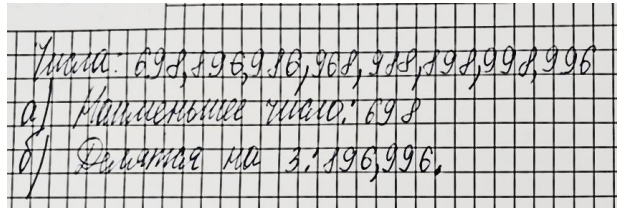 Числа: 698,896,986,968,988,898,998,996
а) Наименьшее число: 698
б) Делятся на 3: 896,996.